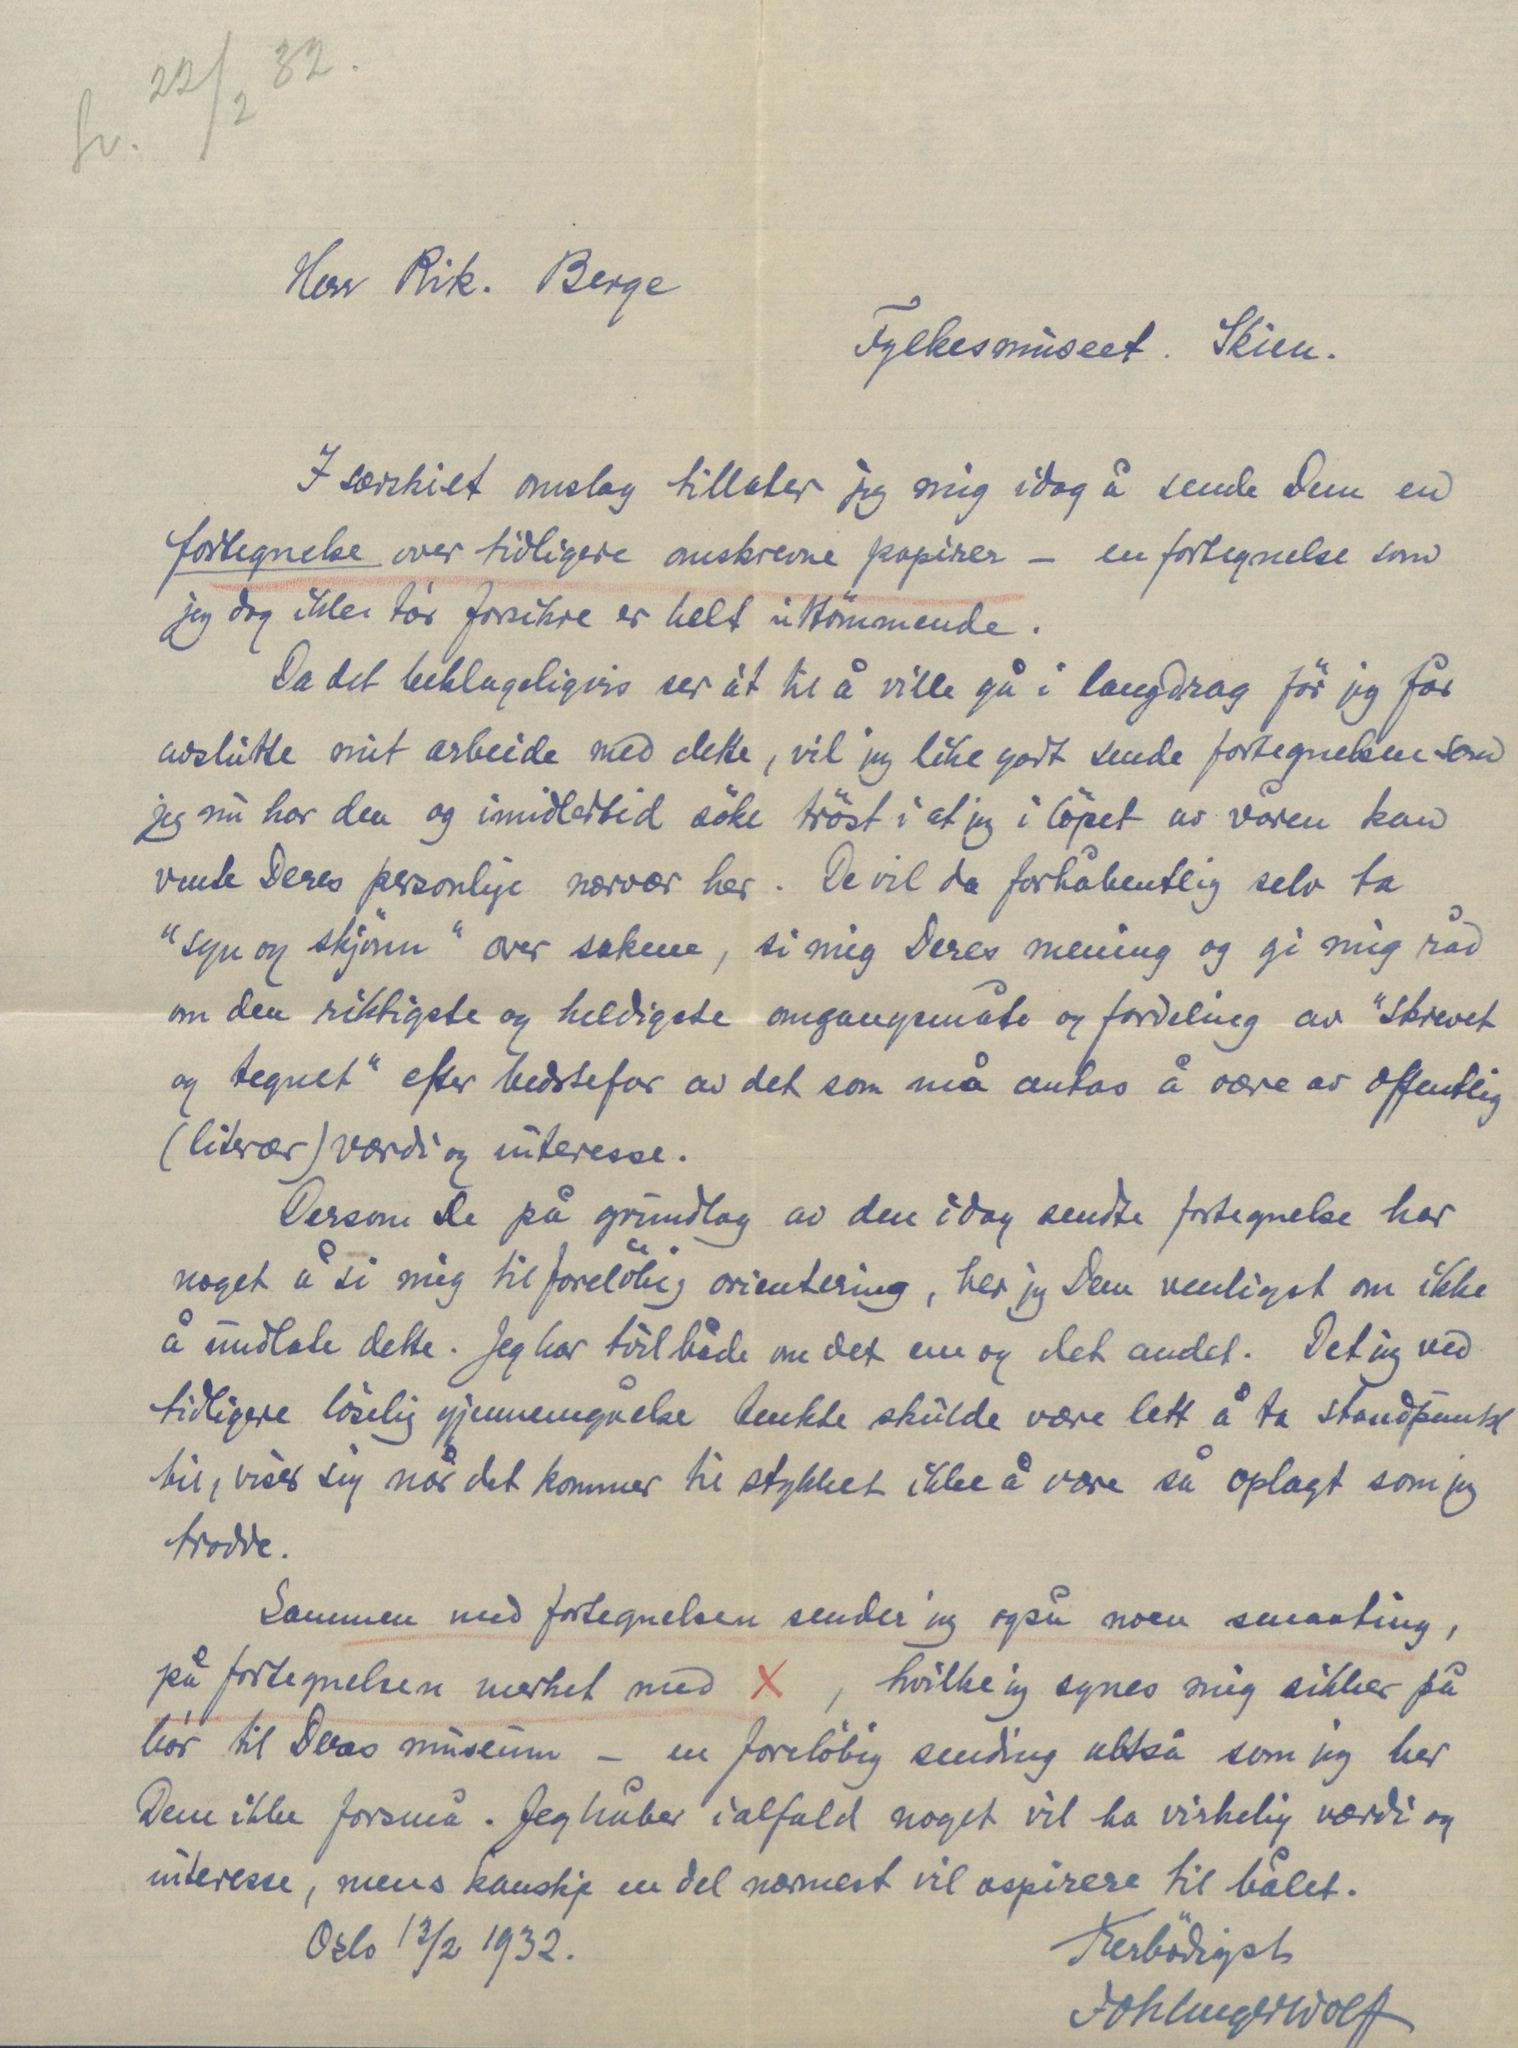 sv. 22/2 32.
Herr Rik. Berge
Fylkesmuseet. Skien.
I særskilt omslag tillater jeg mig idag å sende Dem en
fortegnelse over tidligere omskrevne papirer – en fortegnelse som
jeg dog ikke tør forsikre er helt uttömmende.
Da det beklageligvis ser ut til å ville gå i langdrag för jeg får
avslutte mit arbeide med dette, vil jeg like godt sende fortegnelsen som
jeg nu har den og imidlertid söke tröst i at jeg i löpet av våren kan
vente Deres personlige nærvær her. De vil da forhåbentlig selv ta
"syn og skjönn" over sakene, si mig Deres mening og gi mig råd
om den riktigste og heldigste omgangsmåte og fordeling av "skrevet
og tegnet" efter bedstefar av det som må antas å være av offentlig
(literær) værdi og interesse.
Dersom De på grundlag av den idag sendte fortegnelse har
noget å si mig til forelöbig orientering, ber jeg Dem venligst om ikke
å undlate dette. Jeg har tvil både om det ene og det andet. Det jeg ved
tidligere löselig gjennemgåelse tenkte skulde være lett å ta standpunkt
til, viser sig når det kommer til stykket ikke å være så oplagt som jeg
trodde.
Sammen med fortegnelsen sender jeg også noen smaating,
på fortegnelsen merket med X, hvilke jeg synes mig sikker på
bör til Deres museum – en forelöbig sending altså som jeg ber
Dem ikke forsmå. Jeg håber ialfald noget vil ha virkelig værdi og
interesse, mens kanskje en del nærmest vil aspirere til bålet.
Oslo 13/2 1932.
Ærbödigst